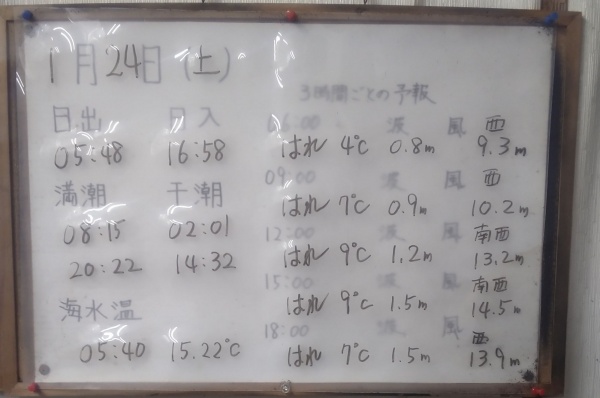 1月24日(土)
日出 日入
05:48 16:58
満潮 干潮
08:15 02:01
20:22 14:32
海水温
05:40 15.22℃
3時間ごとの予報
06:00 波 風 西
はれ 4℃ 0.8m 9.3m
09:00 波 風 西
はれ 7℃ 0.9m 10.2m
12:00 波 風 南西
はれ 9℃ 1.2m 13.2m
15:00 波 風 南西
はれ 9℃ 1.5m 14.5m
18:00 波 風 西
はれ 7℃ 1.5m 13.9m